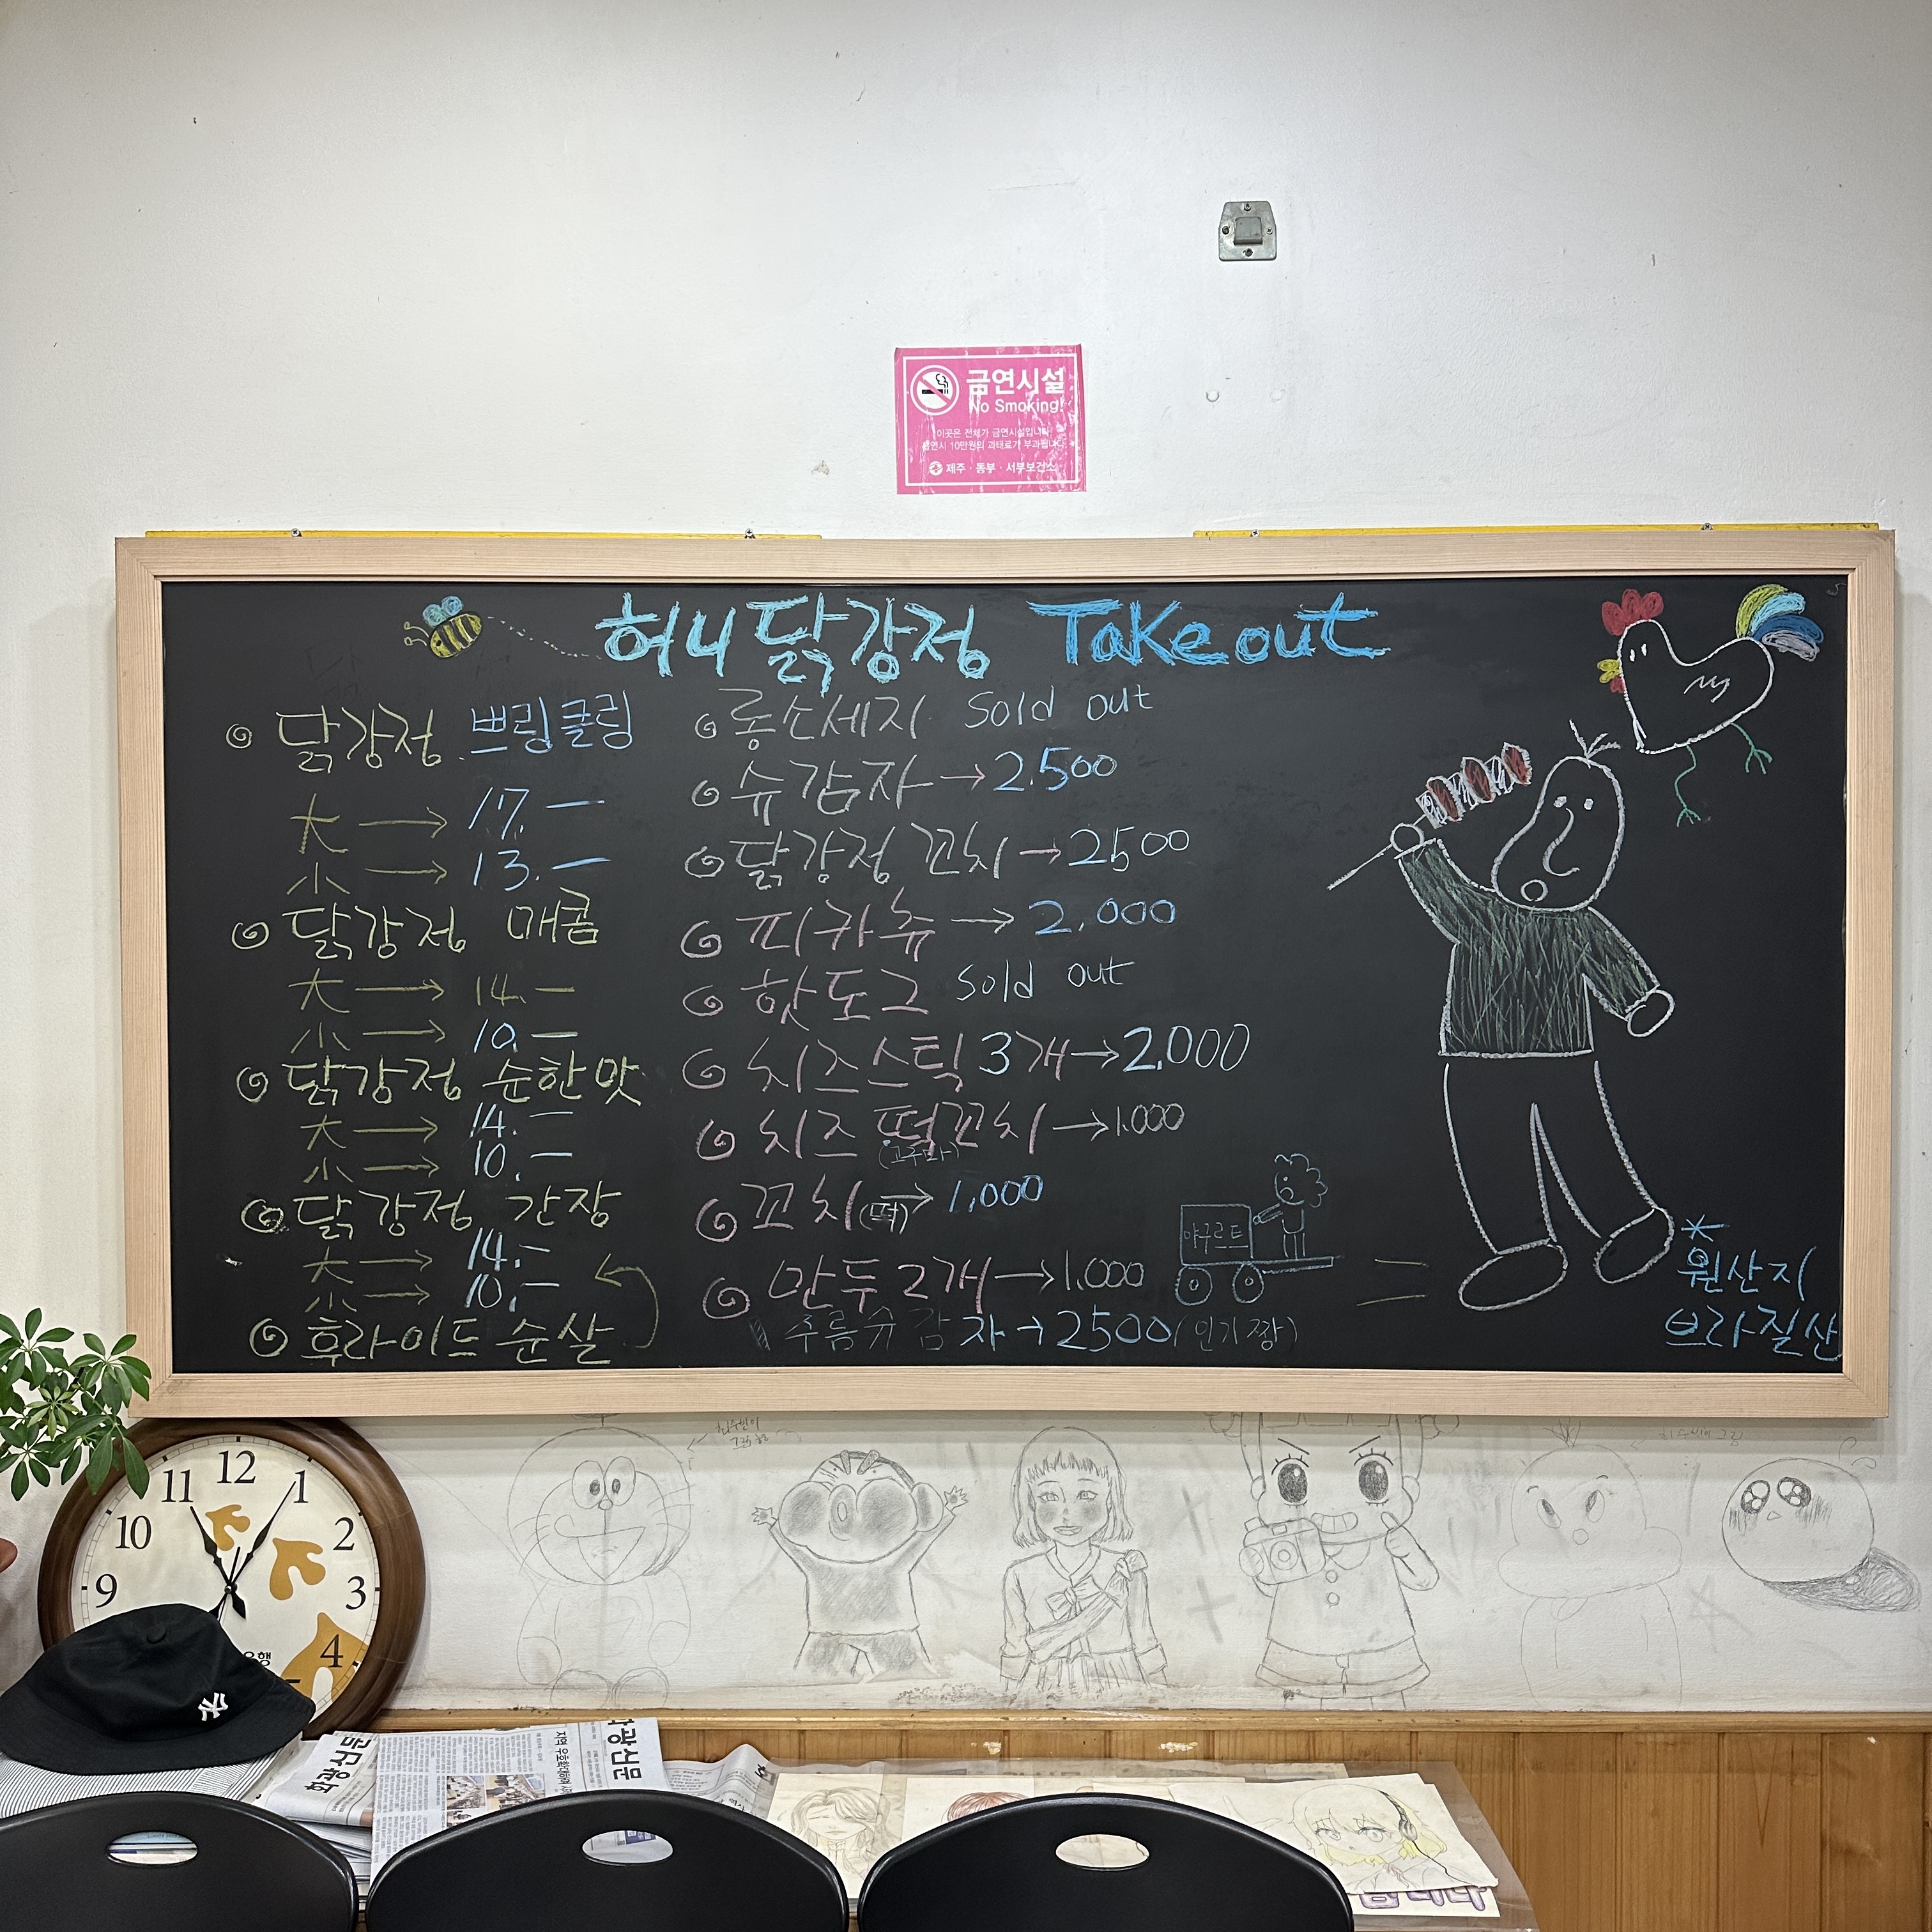 금연시설
No Smoking!
이곳은 전체가 금연시설입니다.
금연시 10만원의 과태료가 부과됩니다.
제주 · 동부 · 서부보건소
허니닭강정 Take out
닭강정 쁘링클링
大 → 17.-
小 → 13.-
닭강정 매콤
大 → 14.-
小 → 10.-
닭강정 순한맛
大 → 14.-
小 → 10.-
닭강정 간장
大 → 14.-
小 → 10.-
후라이드 순살
롱소세지 Sold out
슈감자 → 2.500
닭강정 꼬치 → 2500
피카츄 → 2,000
핫도그 Sold out
치즈스틱 3개 → 2.000
치즈 떡꼬치 → 1.000
(고구마)
꼬치(떡) → 1,000
만두 2개 → 1,000
수름슈감자 → 2500 (인기짱)
야쿠르트
*
원산지
브라질산
12
1
2
3
4
9
10
11
은행
NY